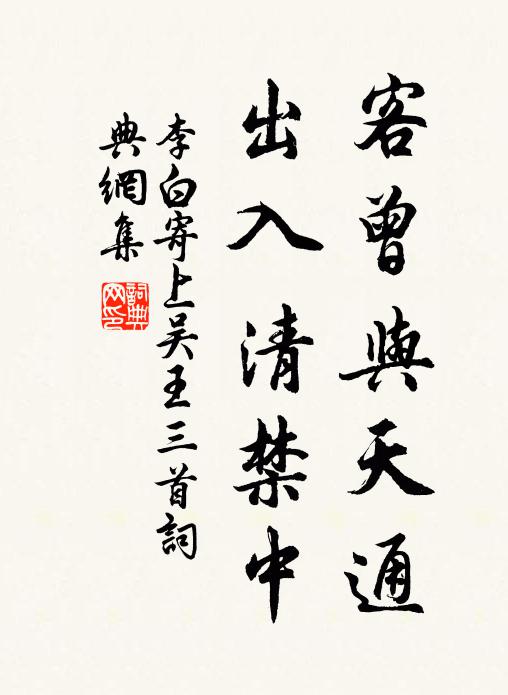 客曾與天通
出入清禁中
李白寄上吴王三首詞
典網集
詞典
网印